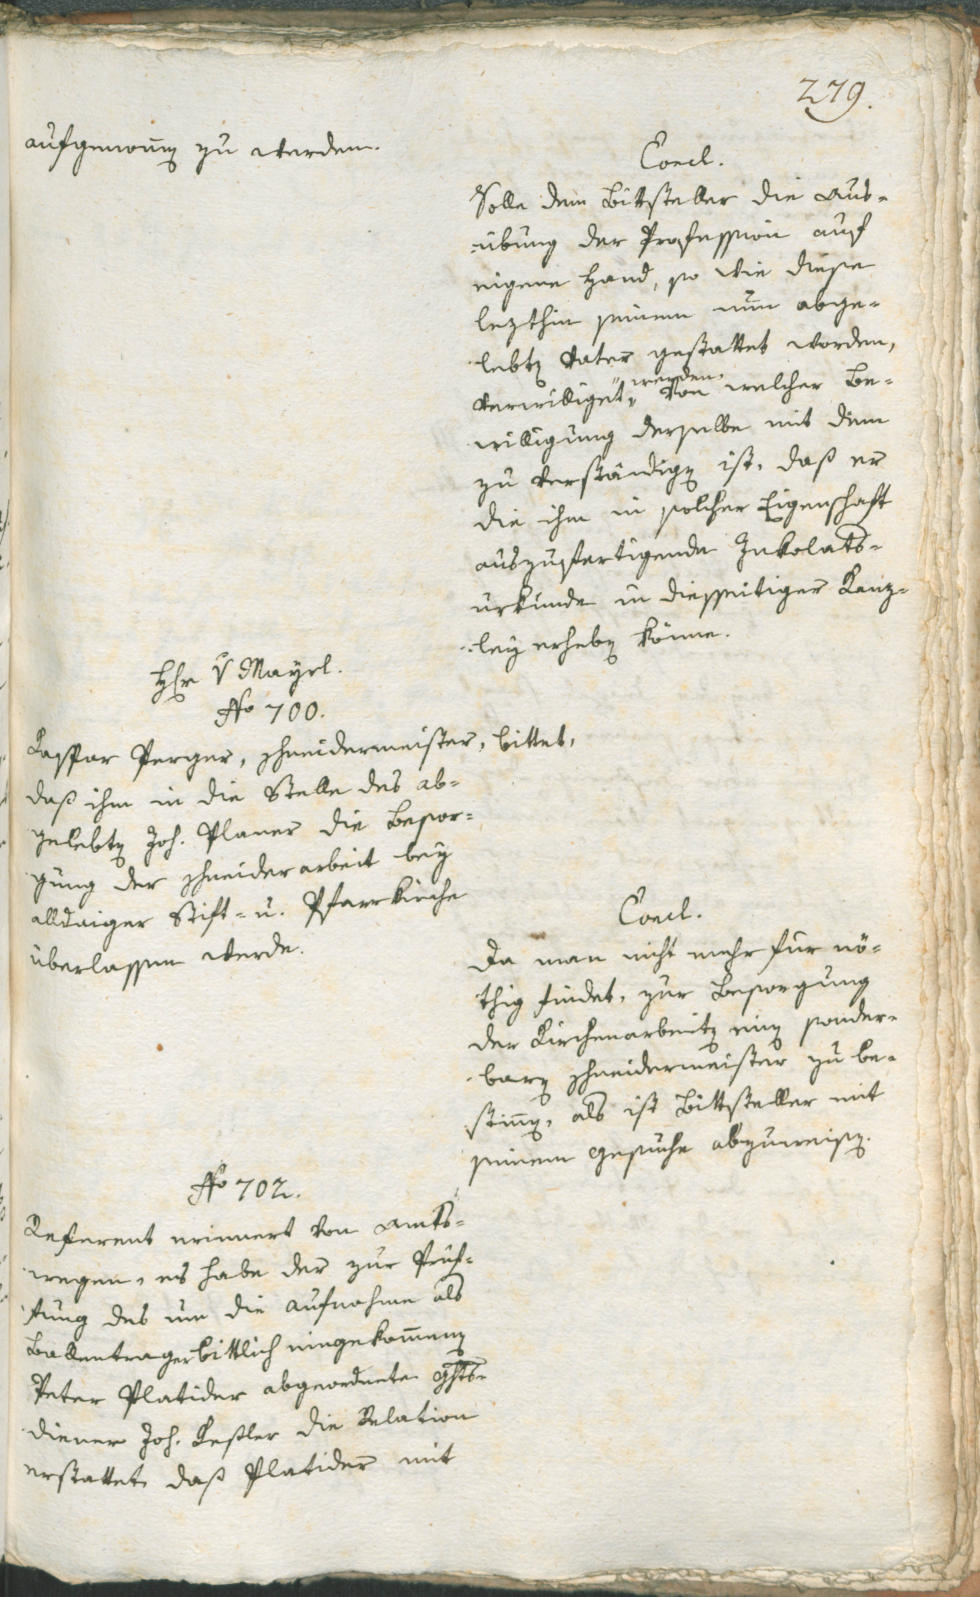 279.
aufgenom̅en zu werden.
Concl.
Solle dem Bittsteller die Aus-
übung der Profession auf
eigene Hand, so wie diese
lezthin seinem nun abge-
lebten Vater gestattet worden,
verwilliget werden. Von welcher Be-
willigung derselbe mit dem
zu verständigen ist, daß er
die ihm in solcher Eigenschaft
auszufertigende Inkolats-
urkunde in diesseitiger Kanz-
ley erheben könne.
Hr v Mayrl.
No 700.
Kaspar Perger, Schneidermeister, bittet,
daß ihm in die Stelle des ab-
gelebten Joh. Planer die Besor-
gung der Schneiderarbeit bey
alldaiger Stift- u. Pfarrkirche
überlassen werde.
Concl.
Da man nicht mehr für nö-
thig findet, zur Besorgung
der Kirchenarbeiten einen sonder-
baren Schneidermeister zu be-
stim̅en, als ist Bittsteller mit
seinem Gesuche abzuweisen.
No 702.
Referent erinnert von Amts-
wegen, es habe der zur Prüf-
fung des um die Aufnahme als
Ballentrager bittlich eingekom̅enen
Peter Platider abgeordnete Ghts-
diener Joh. Keßler die Relation
erstattet, daß Platider mit